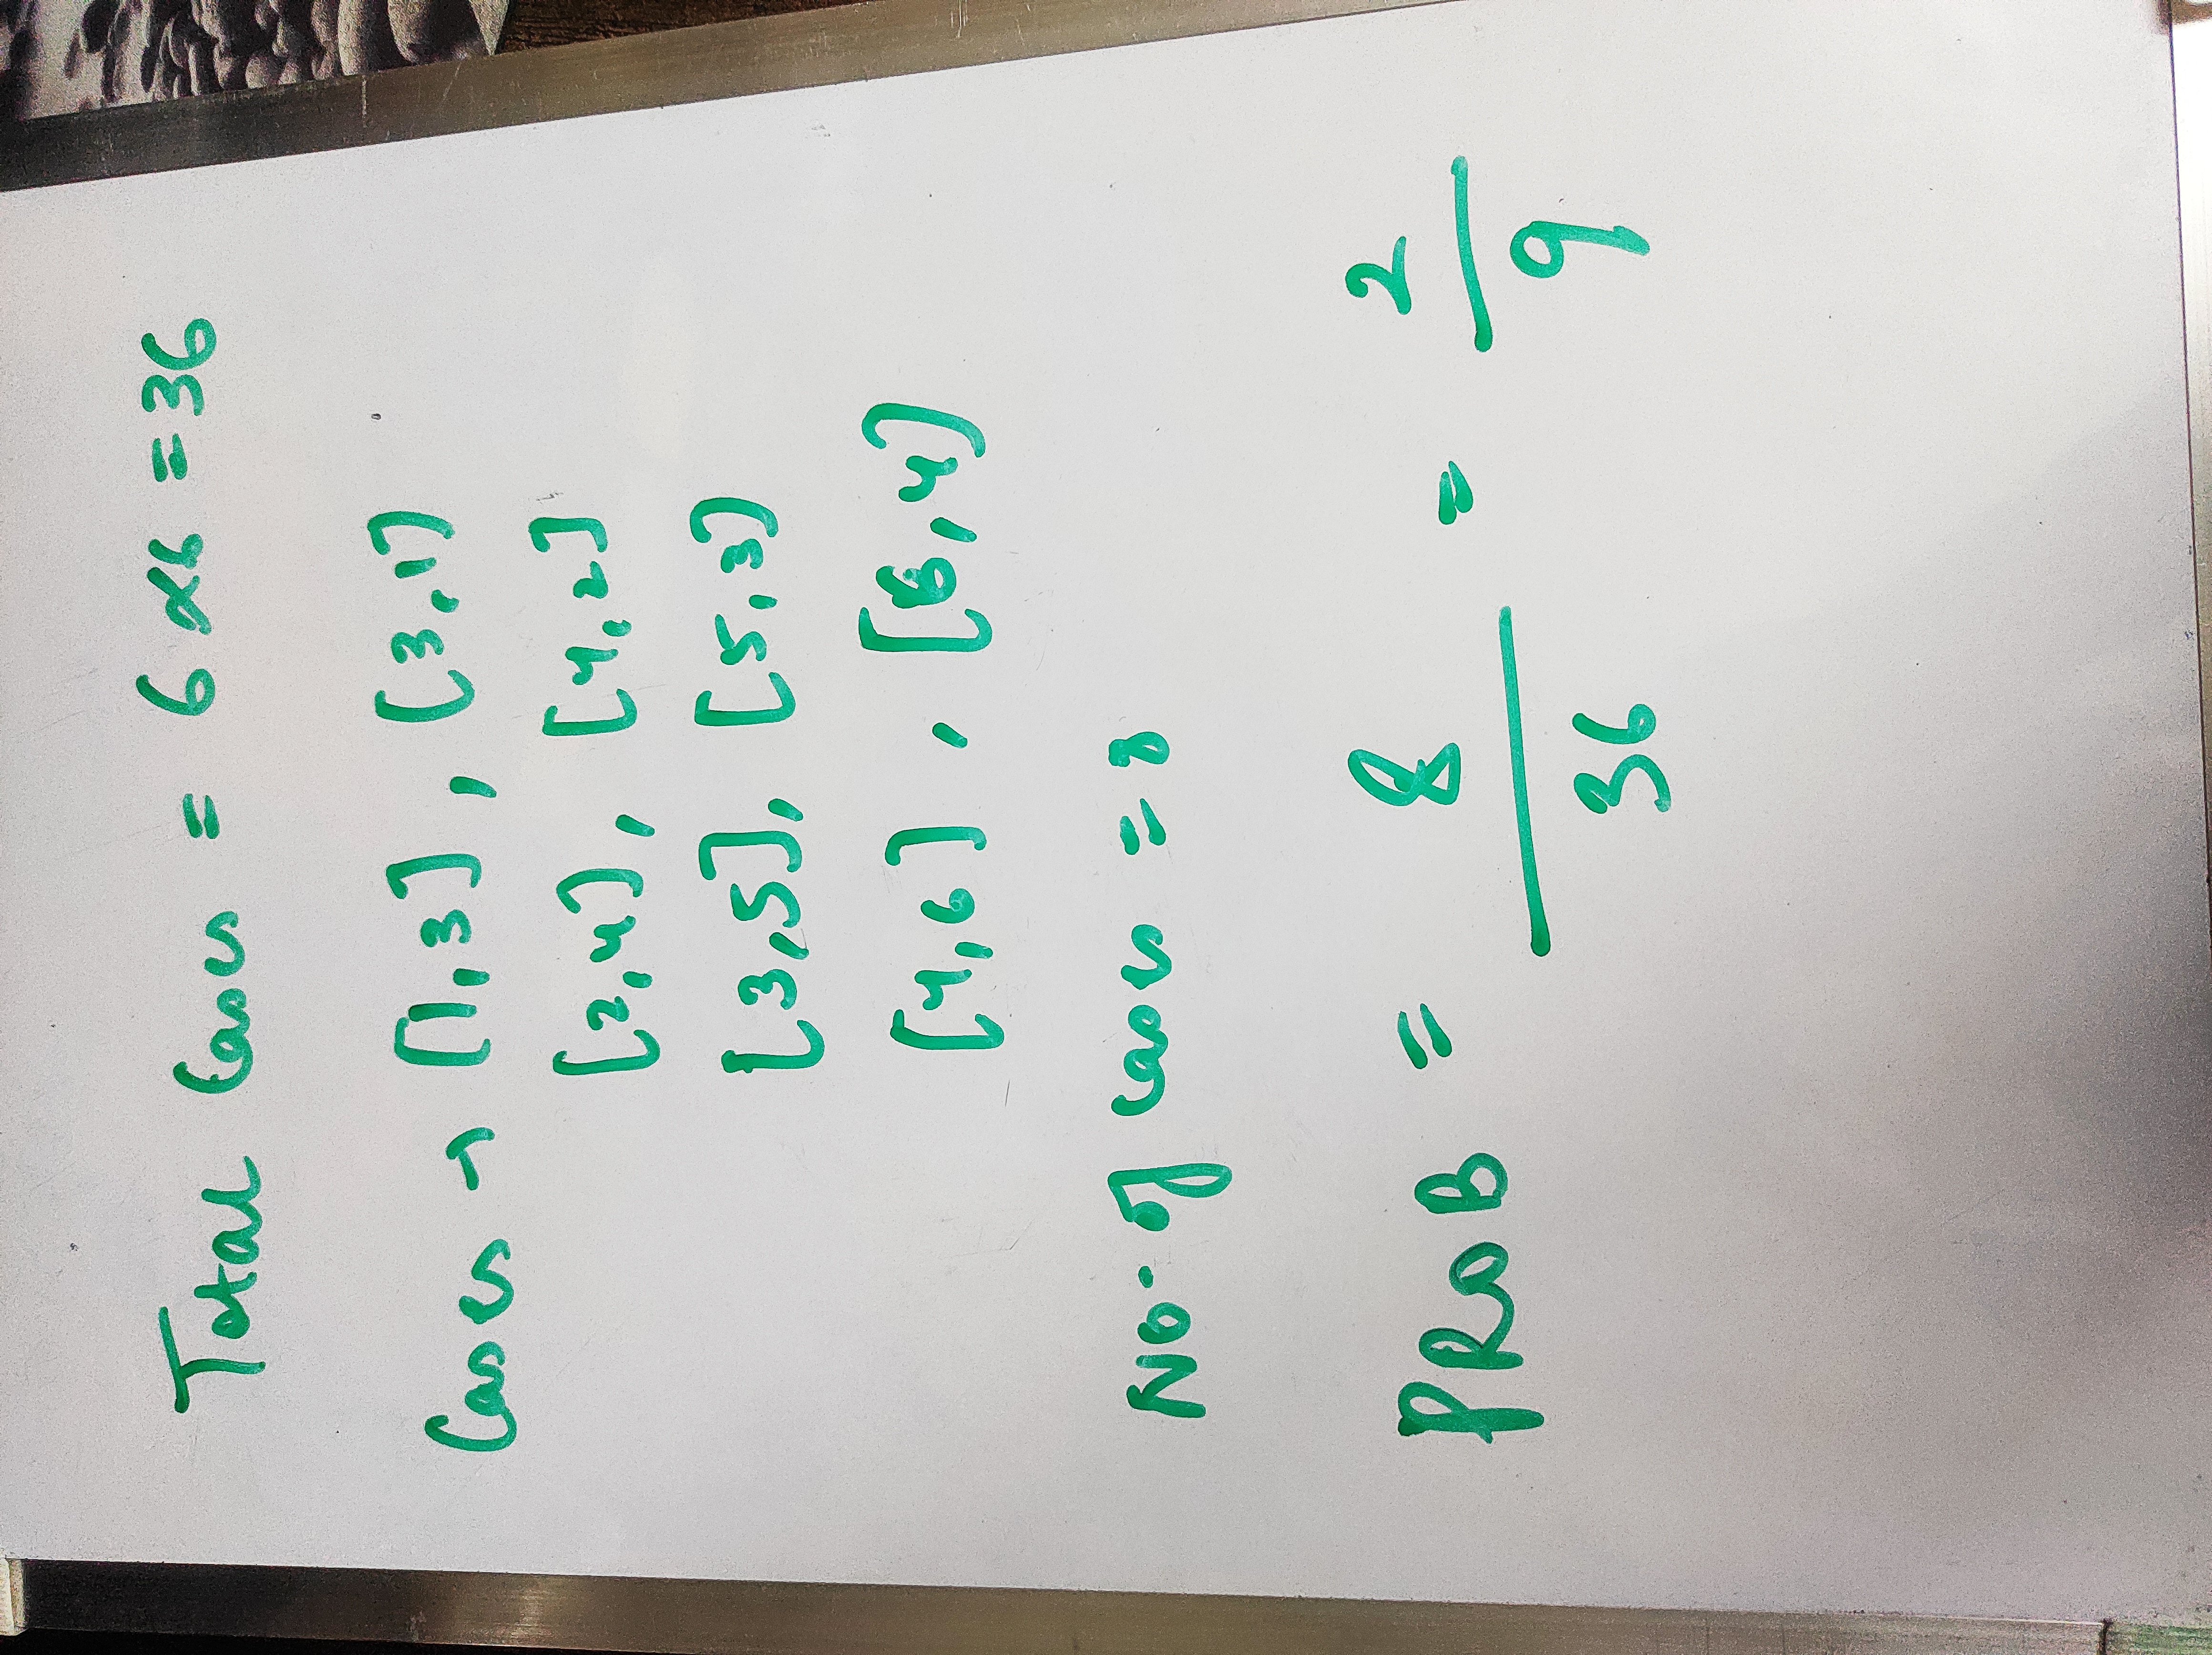 Total Cases = 6 x 6 = 36
Cases → [1,3], [3,1]
[2,4], [4,2]
[3,5], [5,3]
[4,6], [6,4]
No. of cases = 8
PROB = 8/36 = 2/9